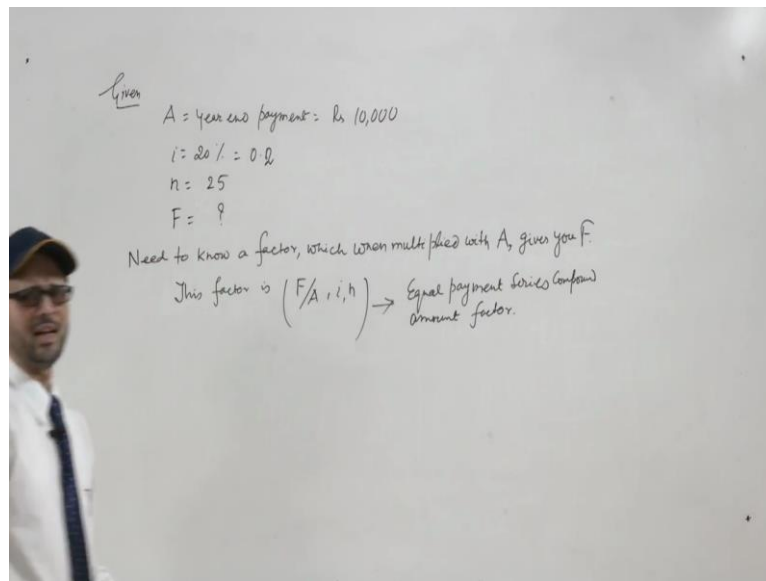 Given
A = year end payment = Rs 10,000
i = 20 % = 0.2
n = 25
F = ?
Need to know a factor, which when multiplied with A, gives you F.
This factor is (F/A, i, n) → Equal payment Series Compound
amount factor.